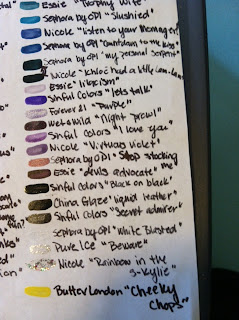 Essie "Trophy Wife"
Sephora by OPI "Slushied"
Nicole "Listen to your Momager!"
Sephora by OPI
Sephora by OPI "my personal serpent"
Nicole "Khloe had a little Lam-Lam"
Essie "lilacism"
Sinful Colors "lets talk"
Forever 21 "Purple"
Wet n Wild "Night prowl"
Sinful Colors "I love you"
Nicole "Virtuous violet"
Sephora by OPI "Stop stocking me?"
Essie "devils advocate"
Sinful colors "Black on black"
China Glaze "liquid leather"
Sinful Colors "Secret admirer"
Sephora by OPI "White Busted"
Pure Ice "Beware"
Nicole "Rainbow in the
S-Kylie"
Butter London "Cheeky
Chops"